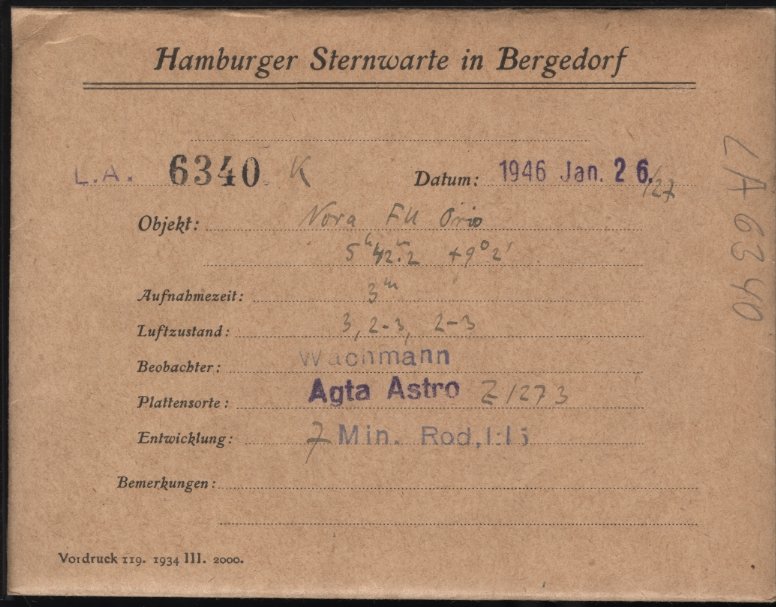 Hamburger Sternwarte in Bergedorf
L.A. 6340 K Datum: 1946 Jan. 26./27
Objekt: Nova FU Orio
5ʰ42ᵐ.2 +9°2'
Aufnahmezeit: 3ᵐ
Luftzustand: 3, 2-3, 2-3
Beobachter: Wachmann
Plattensorte: Agfa Astro Z1273
Entwicklung: 7 Min. Rod, 1:15
Bemerkungen:
Vordruck 119. 1934 III. 2000.
LA 6340